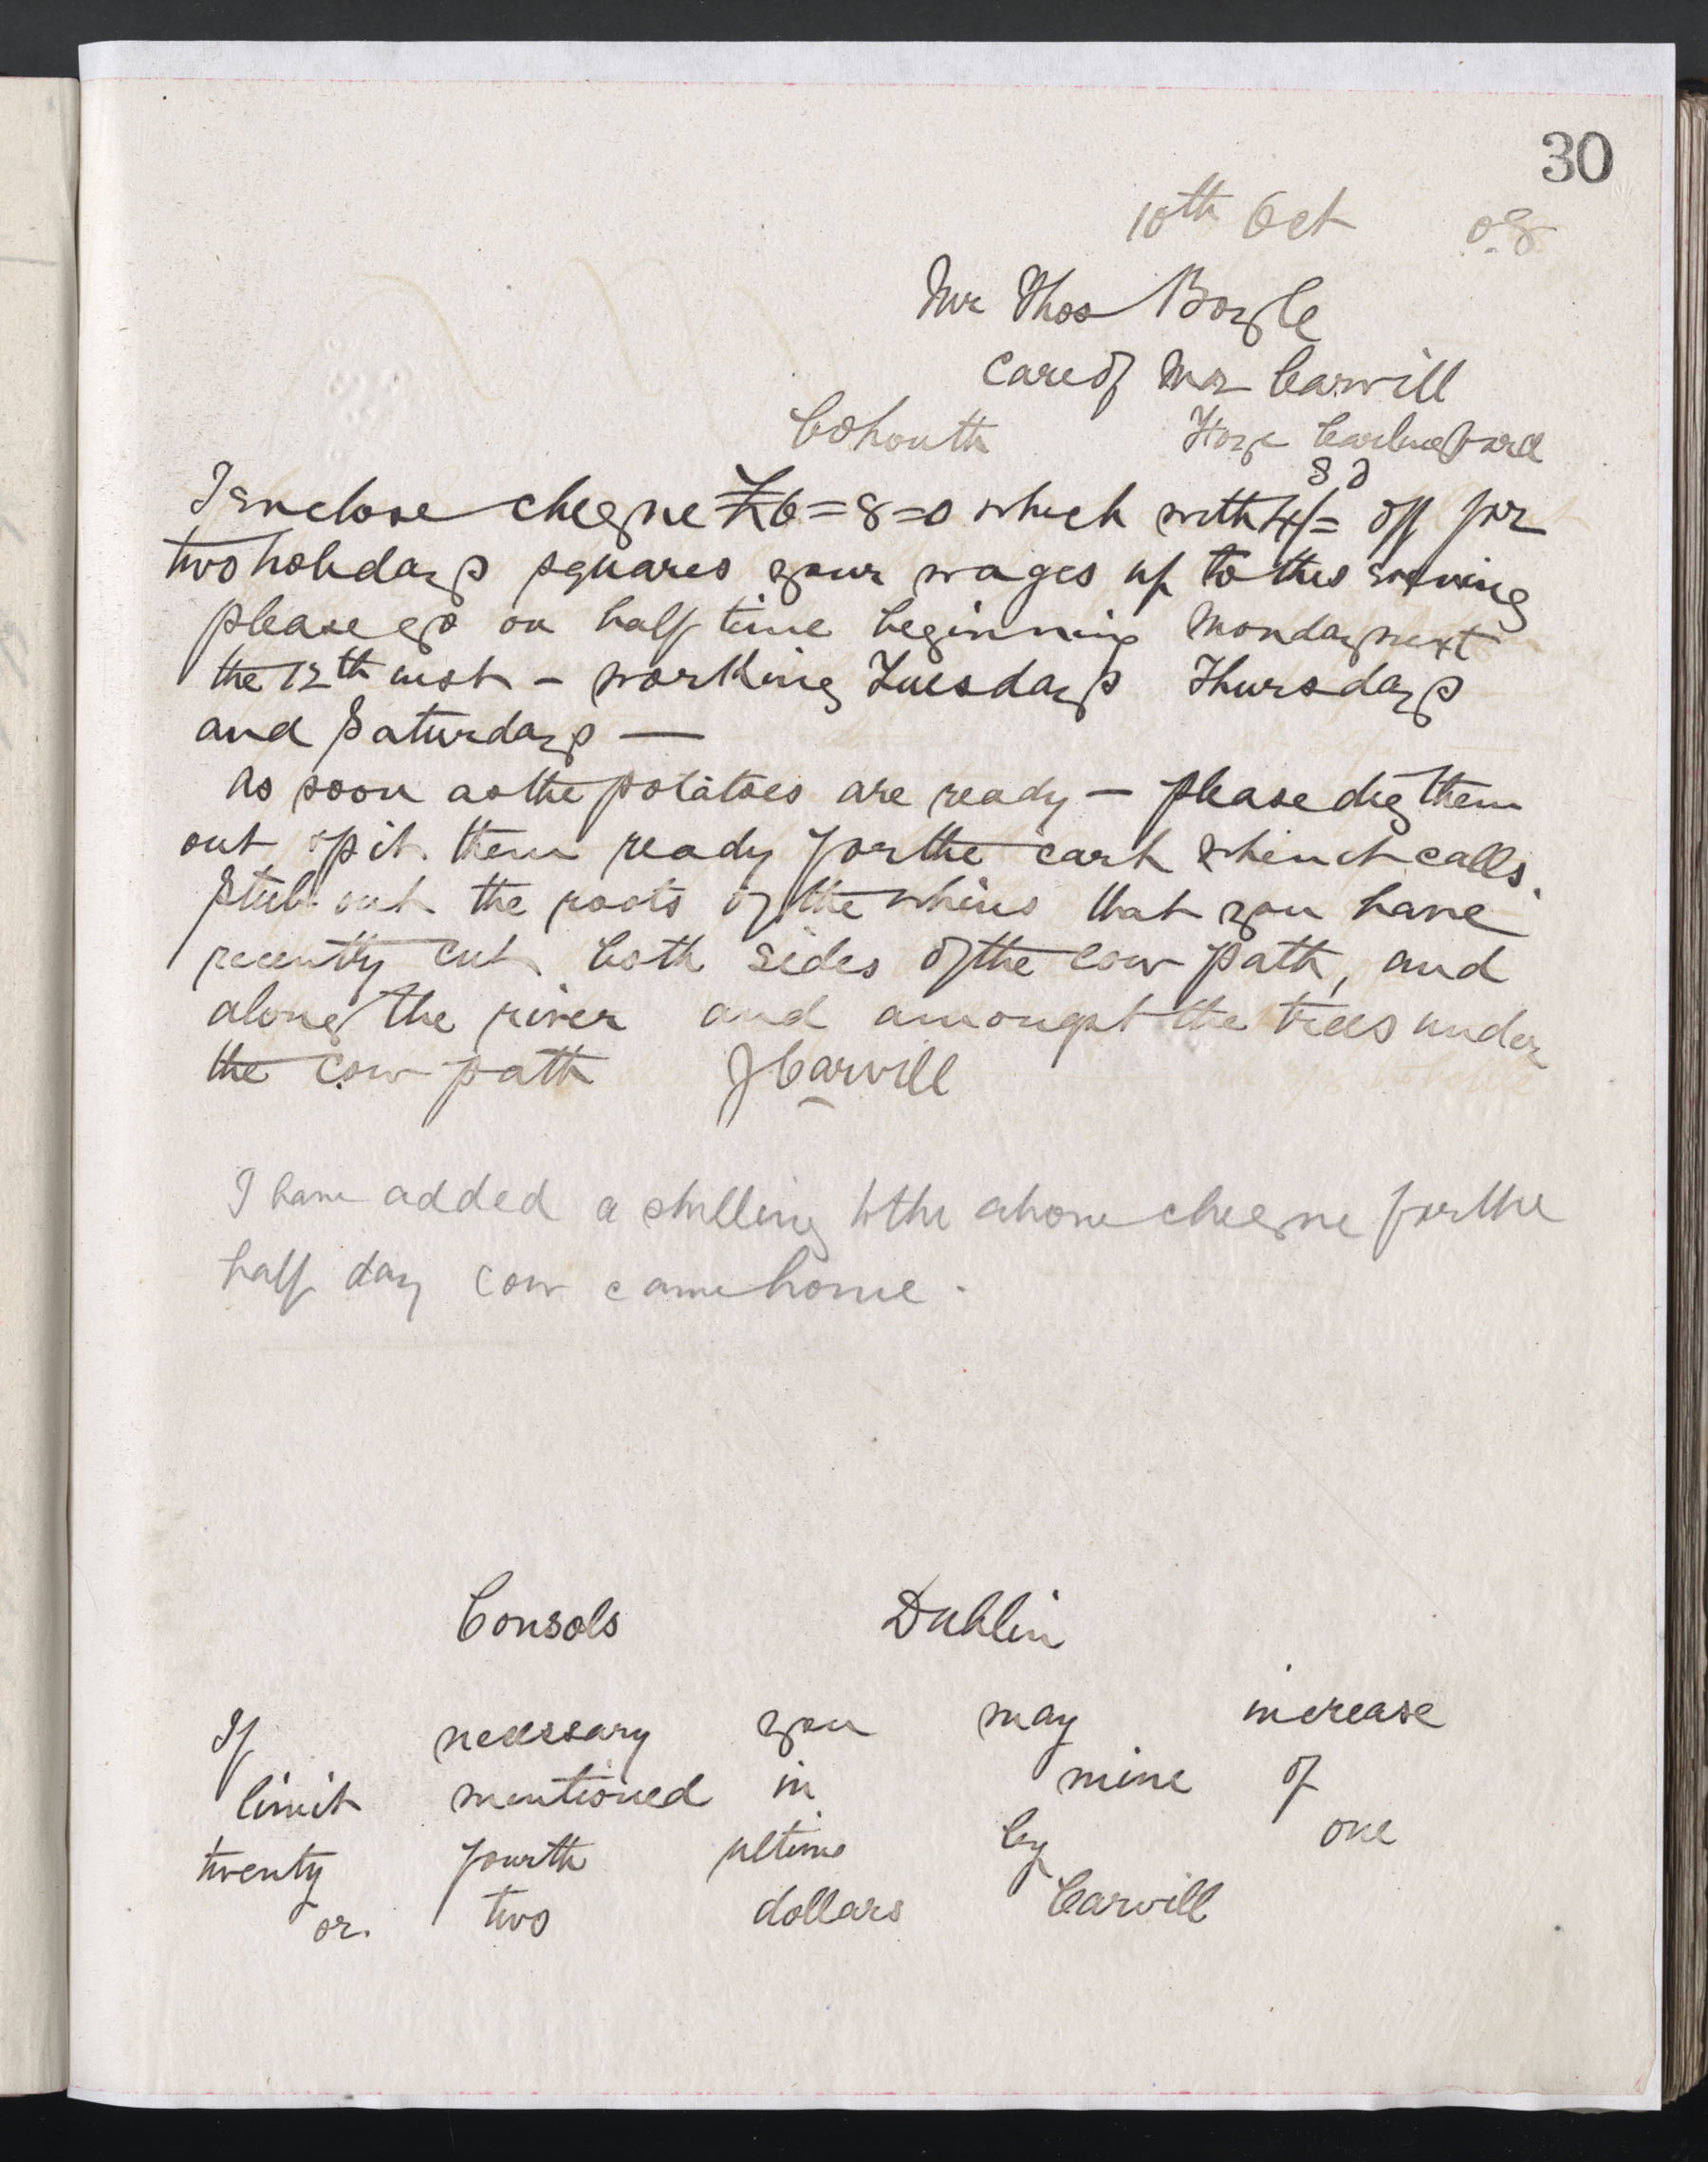 30
10th Oct 08
Mr Thos Boyle
care of Mr Carvill
Co Louth
I enclose cheque £6=8=0 which with 4/= off for
s d
two holidays squares your wages up to this evening
please go on half time beginning Monday next
the 12th inst - working Tuesdays Thursdays
and Saturdays —
As soon as the potatoes are ready — please dig them
out & pit them ready for the cart when it calls.
Stub out the roots of the whins that you have
recently cut both sides of the cow path, and
along the river and amongst the trees under
the cow path J Carvill
I have added a shilling to the above cheque for the
half day cow came home.
Consols Dublin
If necessary you may increase
limit mentioned in mine of
twenty fourth ultimo by one
or two dollars Carvill